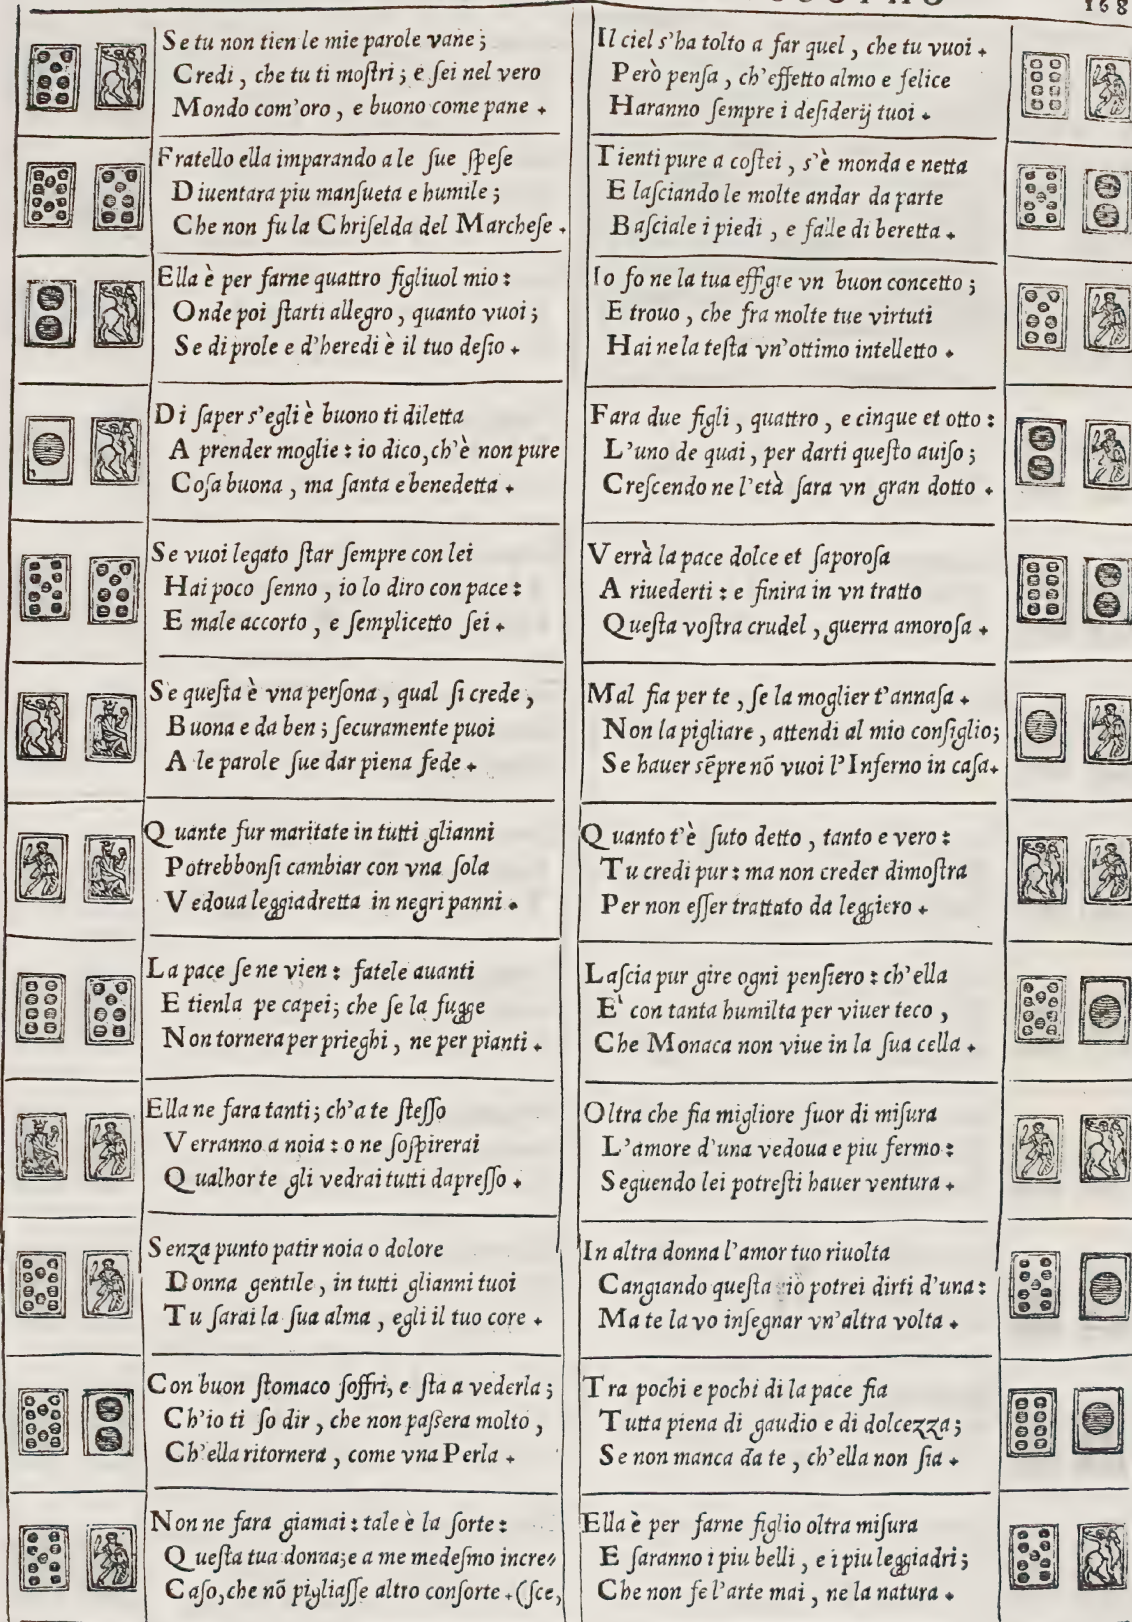 168
Se tu non tien le mie parole vane;
Credi, che tu ti moſtri; e ſei nel vero
Mondo com'oro, e buono come pane.
Fratello ella imparando a le ſue ſpeſe
Diuentara piu manſueta e humile;
Che non fu la Chriſelda del Marcheſe.
Ella è per farne quattro figliuol mio:
Onde poi ſtarti allegro, quanto vuoi;
Se di prole e d'heredi è il tuo deſio.
Di ſaper s'egli è buono ti diletta
A prender moglie: io dico, ch'è non pure
Coſa buona, ma ſanta e benedetta.
Se vuoi legato ſtar ſempre con lei
Hai poco ſenno, io lo diro con pace:
E male accorto, e ſemplicetto ſei.
Se queſta è vna perſona, qual ſi crede,
Buona e da ben; ſecuramente puoi
A le parole ſue dar piena fede.
Quante fur maritate in tutti glianni
Potrebbonſi cambiar con vna ſola
Vedoua leggiadretta in negri panni.
La pace ſe ne vien: fatele auanti
E tienla pe capei; che ſe la fugge
Non tornera per prieghi, ne per pianti.
Ella ne fara tanti; ch'a te ſteſſo
Verranno a noia: o ne ſoſpirerai
Qualhor te gli vedrai tutti dapreſſo.
Senza punto patir noia o dolore
Donna gentile, in tutti glianni tuoi
Tu ſarai la ſua alma, egli il tuo core.
Con buon ſtomaco ſoffri, e ſta a vederla;
Ch'io ti ſo dir, che non paßera molto,
Ch'ella ritornera, come vna Perla.
Non ne fara giamai: tale è la ſorte:
Queſta tua donna; e a me medeſmo incre⸗
Caſo, che nō pigliaſſe altro conſorte. (ſce,
Il ciel s'ha tolto a far quel, che tu vuoi.
Però penſa, ch'effetto almo e felice
Haranno ſempre i deſiderij tuoi.
Tienti pure a coſtei, s'è monda e netta
E laſciando le molte andar da parte
Baſciale i piedi, e falle di beretta.
Io fo ne la tua effigie vn buon concetto;
E trouo, che fra molte tue virtuti
Hai ne la teſta vn'ottimo intelletto.
Fara due figli, quattro, e cinque et otto:
L'uno de quai, per darti queſto auiſo;
Creſcendo ne l'età ſara vn gran dotto.
Verrà la pace dolce et ſaporoſa
A riuederti: e finira in vn tratto
Queſta voſtra crudel, guerra amoroſa.
Mal fia per te, ſe la moglier t'annaſa.
Non la pigliare, attendi al mio conſiglio;
Se hauer sēpre nō vuoi l'Inferno in caſa.
Quanto t'è ſuto detto, tanto e vero:
Tu credi pur: ma non creder dimoſtra
Per non eſſer trattato da leggiero.
Laſcia pur gire ogni penſiero: ch'ella
E' con tanta humilta per viuer teco,
Che Monaca non viue in la ſua cella.
Oltra che fia migliore fuor di miſura
L'amore d'una vedoua e piu fermo:
Seguendo lei potreſti hauer ventura.
In altra donna l'amor tuo riuolta
Cangiando queſta iō potrei dirti d'una:
Ma te la vo inſegnar vn'altra volta.
Tra pochi e pochi di la pace fia
Tutta piena di gaudio e di dolcezza;
Se non manca da te, ch'ella non ſia.
Ella è per farne figlio oltra miſura
E ſaranno i piu belli, e i piu leggiadri;
Che non fe l'arte mai, ne la natura.